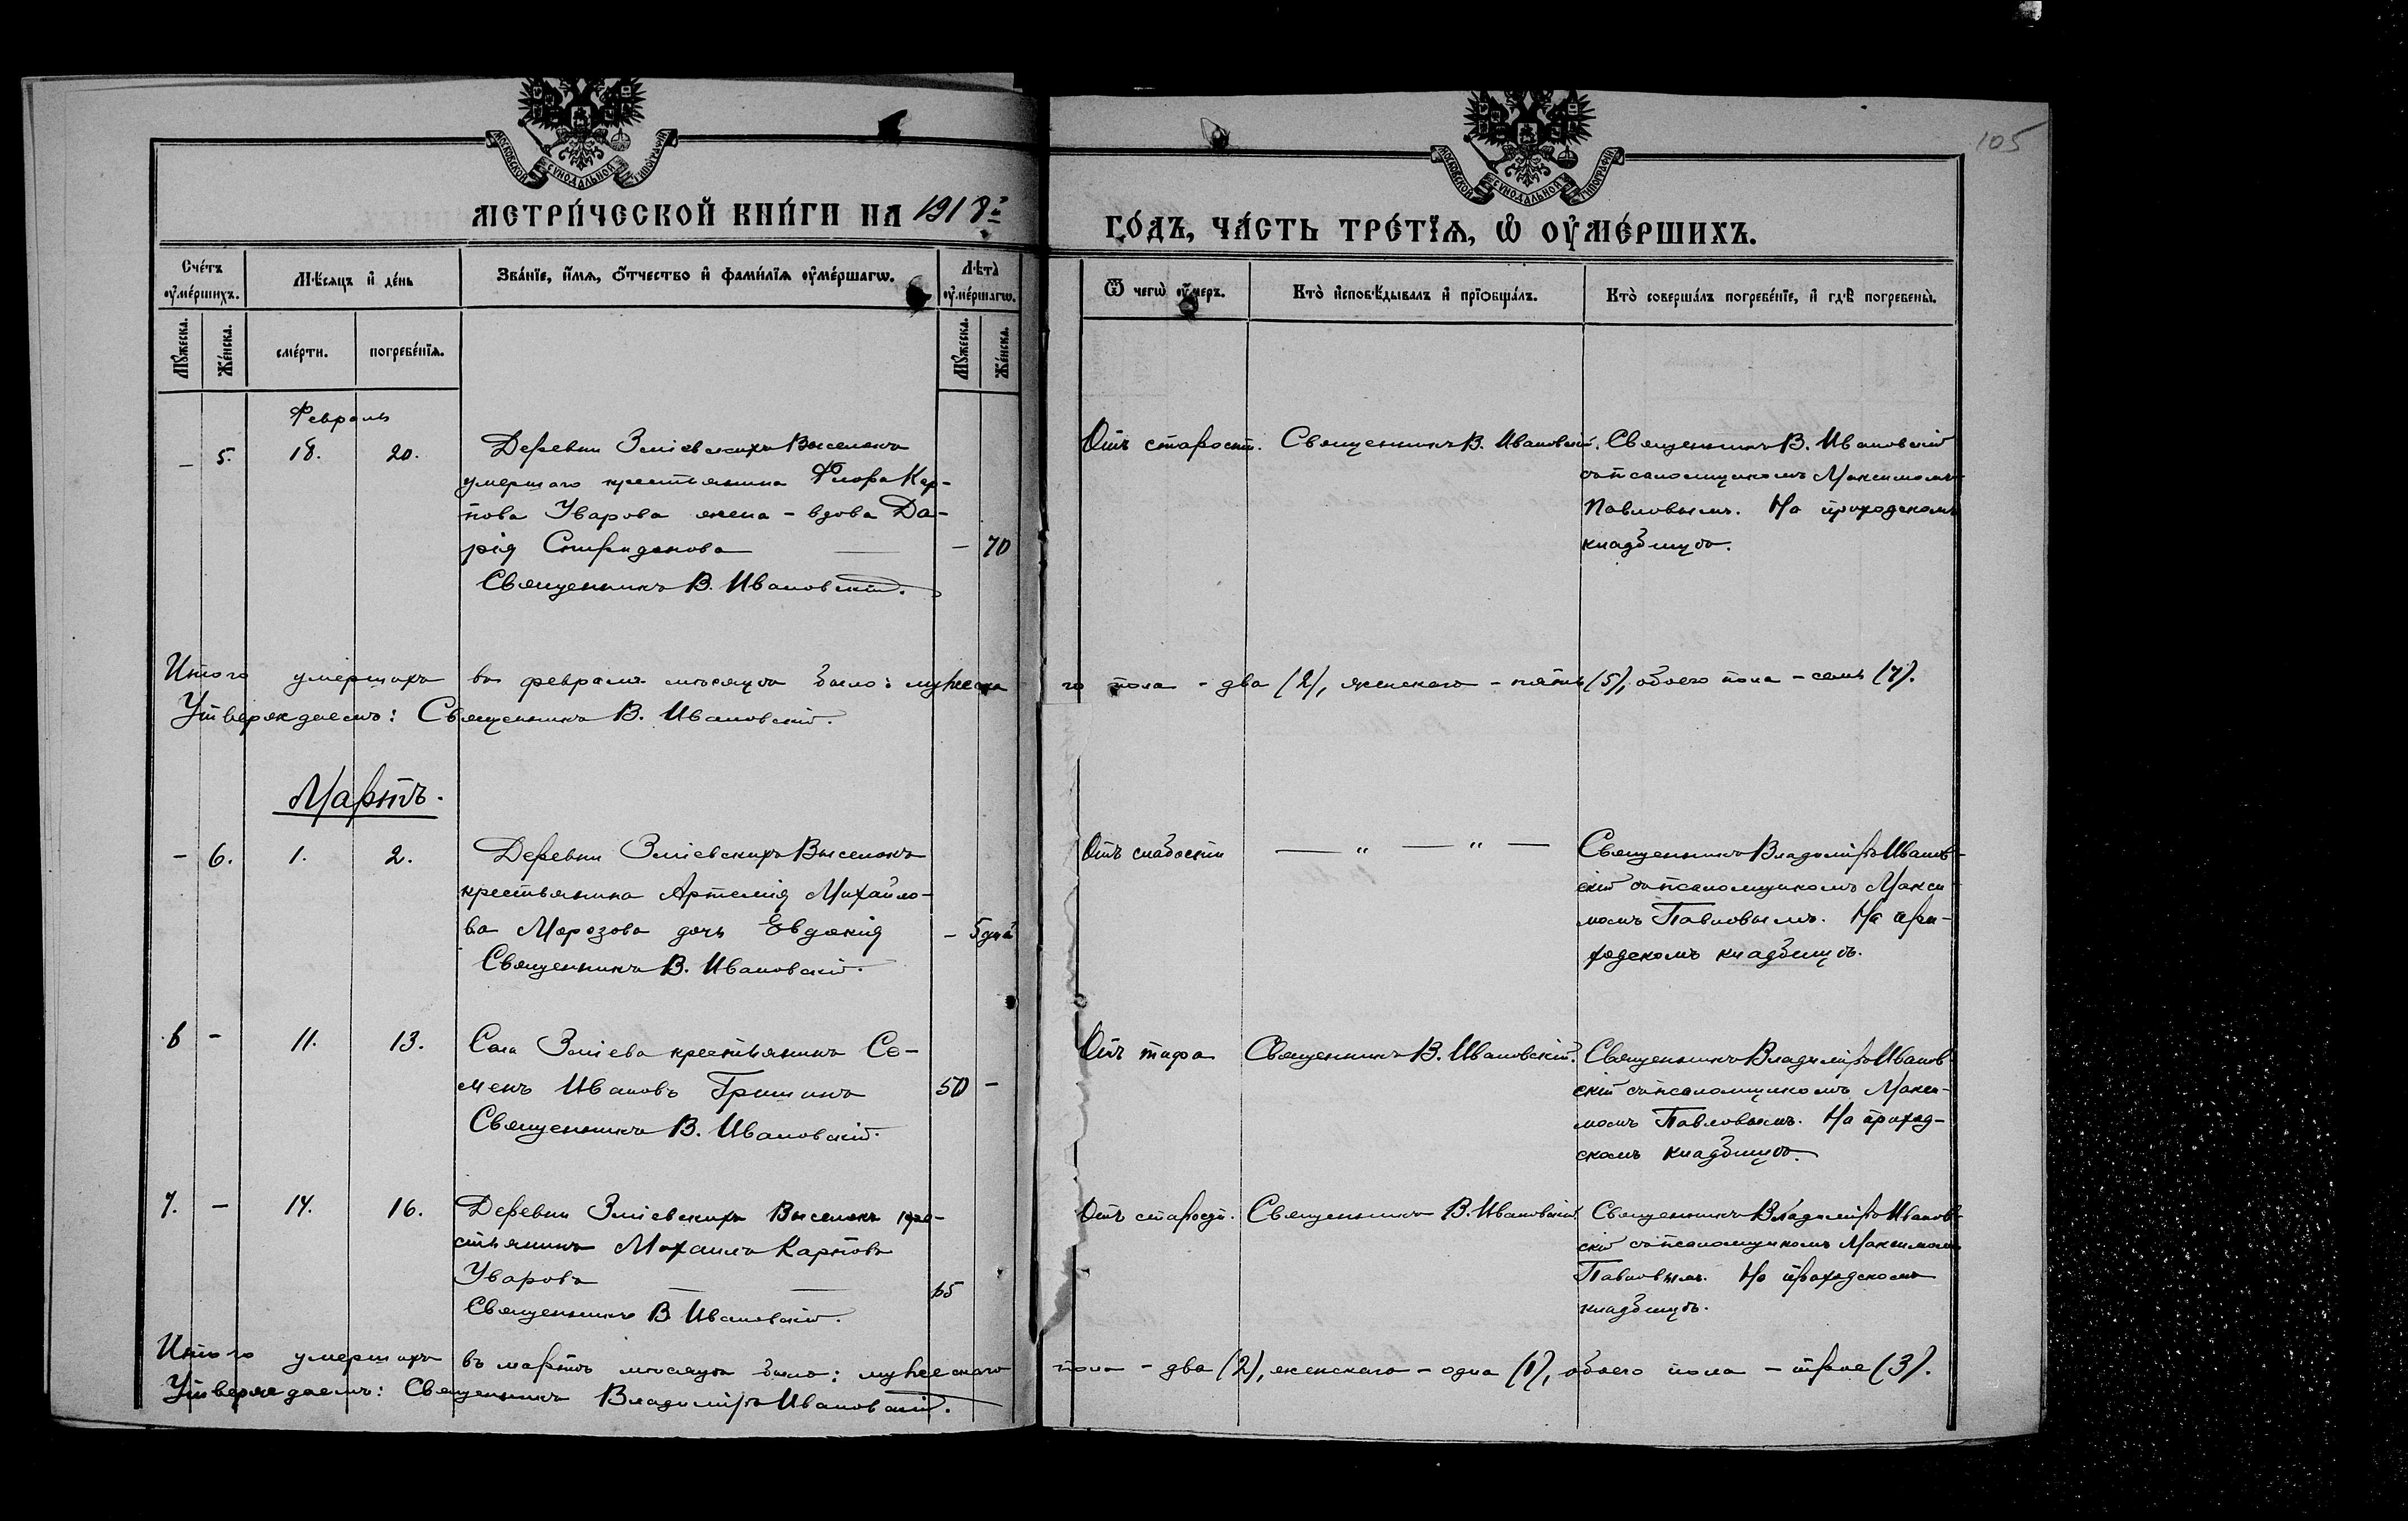 105
МОСКОВСКОЙ СѴНОДАЛЬНОЙ ТИПОГРАФІИ
МОСКОВСКОЙ СѴНОДАЛЬНОЙ ТИПОГРАФІИ
МЕТРИ́ЧЕСКОЙ КНИ́ГИ НА 1918 г.
ГО́ДЪ, ЧА́СТЬ ТРЕ́ТІѦ, Ѡ ОУ҆МЕ́РШИХЪ.
Сче́тъ оу҆ме́ршихъ.
Мѣ́сяцъ и҆ де́нь
Зва́нїе, и҆́мѧ, ѻ҆́тчество и҆ фами́лїѧ оу҆ме́ршагѡ.
Лѣ́та оу҆ме́ршагѡ.
Ѿ чегѡ̀ оу҆́меръ.
Кто̀ и҆сповѣ́дывалъ и҆ прїѻбща́лъ.
Кто̀ соверша́лъ погребе́нїе, и҆ гдѣ̀ погребены̀.
Мꙋ́жеска.
Же́нска.
сме́рти.
погребе́нїѧ.
Мꙋ́жеска.
Же́нска.
Февраль
– 5. 18. 20.
Деревни Зміевскихъ Выселокъ
умершаго крестьянина Флора Кар-
пова Уварова жена – вдова Да-
рія Спиридонова — – 70
Священникъ В. Ивановскій.
Отъ старости. Священникъ В. Ивановскій.
Священникъ В. Ивановскій
съ псаломщикомъ Максимомъ
Павловымъ. На приходскомъ
кладбищѣ.
Итого умершихъ въ февралѣ мѣсяцѣ было: мужеска
го пола – два (2), женскаго – пять (5), обоего пола – семь (7).
Утверждаемъ: Священникъ В. Ивановскій.
Мартъ.
– 6. 1. 2.
Деревни Зміевскихъ Выселокъ
крестьянина Артемія Михайло-
ва Морозова дочь Евдокія – 5 дней
Священникъ В. Ивановскій.
Отъ слабости — „ — „ —
Священникъ Владиміръ Иванов-
скій съ псаломщикомъ Макси-
момъ Павловымъ. На при-
ходскомъ кладбищѣ.
6 – 11. 13.
Села Зміева крестьянинъ Се-
менъ Ивановъ Гришинъ 50 –
Священникъ В. Ивановскій.
Отъ тифа Священникъ В. Ивановскій.
Священникъ Владиміръ Иванов-
скій съ псаломщикомъ Макси-
момъ Павловымъ. На приход-
скомъ кладбищѣ.
7. – 14. 16.
Деревни Зміевскихъ Выселокъ кре-
стьянинъ Михаилъ Карповъ
Уваровъ — — 65
Священникъ В. Ивановскій.
Отъ старости. Священникъ В. Ивановскій.
Священникъ Владиміръ Иванов-
скій съ псаломщикомъ Максимомъ
Павловымъ. На приходскомъ
кладбищѣ.
Итого умершихъ въ мартѣ мѣсяцѣ было: мужескаго
пола – два (2), женскаго – одна (1), обоего пола – трое (3).
Утверждаемъ: Священникъ Владиміръ Ивановскій.